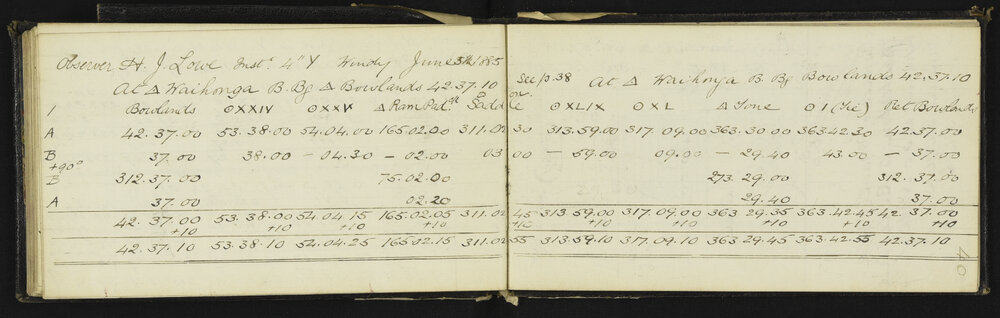 Observer H. J. Lowe Inst. 4" Y Windy June 5th 1885
At △ Waihonga B. Bg △ Bowlands 42.37.10 See p. 38 At △ Waihonga B. Bg Bowlands 42.37.10
I Bowlands ⊙XXIV ⊙XXV △ Ram Pad. Saddle ⊙XLIX ⊙XL △ Tone ⊙ I (Tie) Ret Bowlands
A 42.37.00 53.38.00 54.04.00 165.02.00 311.02 30 313.59.00 317.09.00 363.30.00 363.42.30 42.37.00
B 37.00 38.00 – 04.30 – 02.00 03 00 – 59.00 09.00 – 29.40 43.00 – 37.00
+90°
B 312.37.00 75.02.00 273.29.00 312.37.00
A 37.00 02.20 29.40 37.00
42.37.00 53.38.00 54.04.15 165.02.05 311.02 45 313.59.00 317.09.00 363.29.35 363.42.45 42.37.00
+10 +10 +10 +10 +10 +10 +10 +10 +10
42.37.10 53.38.10 54.04.25 165.02.15 311.02 55 313.59.10 317.09.10 363.29.45 363.42.55 42.37.10
40